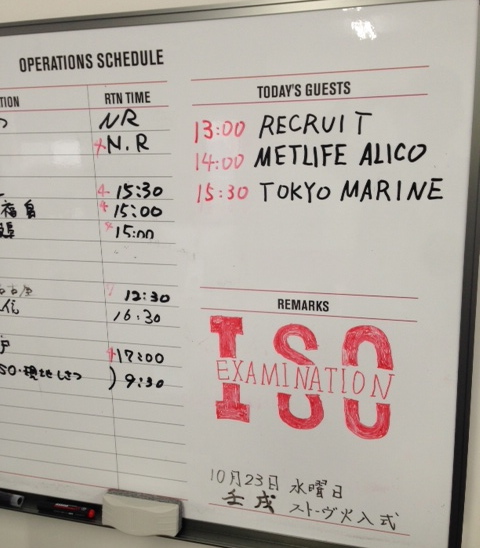 OPERATIONS SCHEDULE
RTN TIME
NR
N.R
15:30
15:00
15:00
12:30
16:30
17:00
9:30
TODAY'S GUESTS
13:00 RECRUIT
14:00 METLIFE ALICO
15:30 TOKYO MARINE
REMARKS
ISO
EXAMINATION
10月23日 水曜日
壬戌 ストーヴ火入式